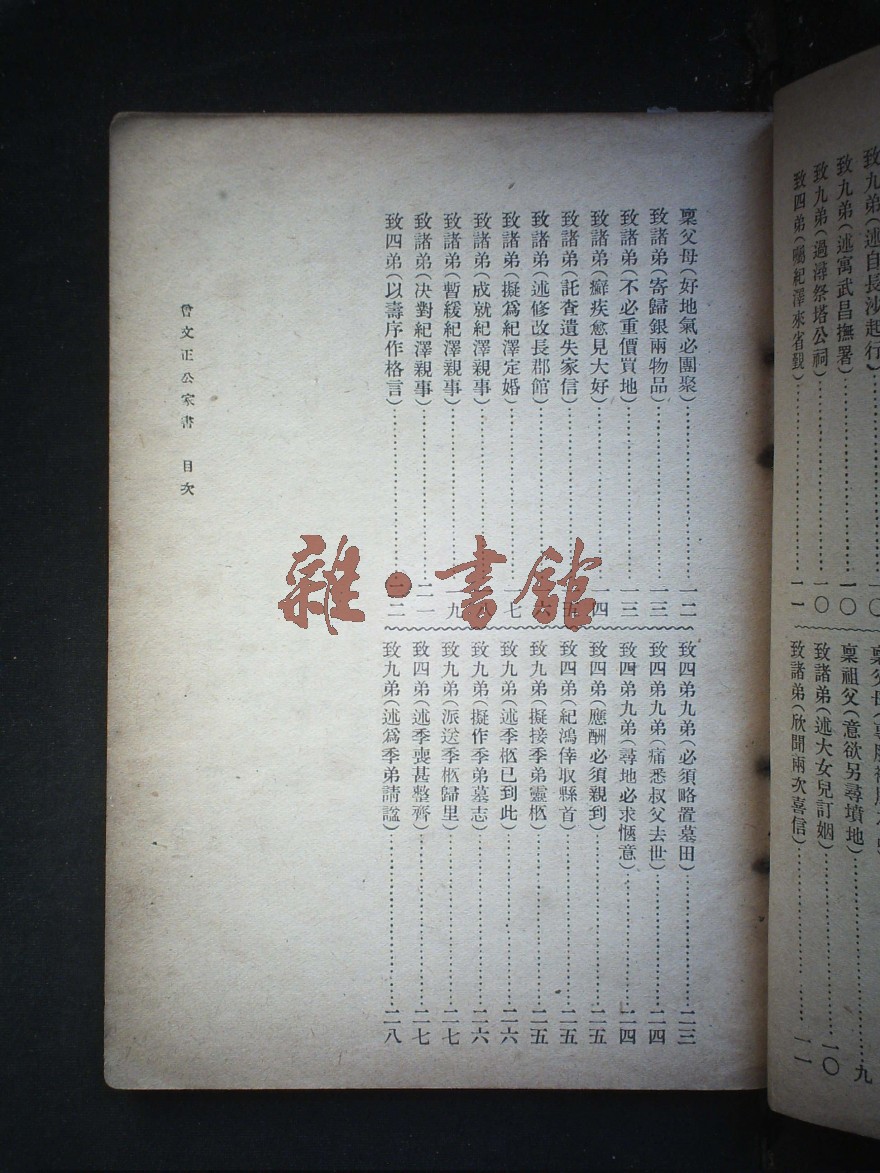 致九弟(述自長沙起行)
致九弟(述寓武昌撫署)……一〇
致九弟(過潯祭塔公祠)……一〇
致四弟(囑紀澤來省覲)……一一
稟祖父(意欲另尋墳地)……九
致諸弟(述大女兒訂姻)……一〇
致諸弟(欣聞兩次喜信)……一一
稟父母(好地氣必團聚)……一二
致諸弟(寄歸銀兩物品)……一三
致諸弟(不必重價買地)……一三
致諸弟(癬疾愈見大好)……四
致諸弟(託查遺失家信)
致諸弟(述修改長郡館)
致諸弟(擬爲紀澤定婚)……七
致諸弟(成就紀澤親事)
致諸弟(暫緩紀澤親事)……九
致諸弟(決對紀澤親事)……二一
致四弟(以壽序作格言)……二二
致四弟九弟(必須略置墓田)……二三
致四弟九弟(痛悉叔父去世)……二四
致四弟九弟(尋地必求愜意)……二四
致四弟(應酬必須親到)……二五
致四弟(紀鴻倖取縣首)……二五
致九弟(擬接季弟靈柩)……二五
致九弟(述季柩已到此)……二六
致九弟(擬作季弟墓志)……二六
致九弟(派送季柩歸里)……二七
致四弟(述季喪甚整齊)……二七
致九弟(述爲季弟請諡)……二八
曾文正公家書 目次
雜·書館